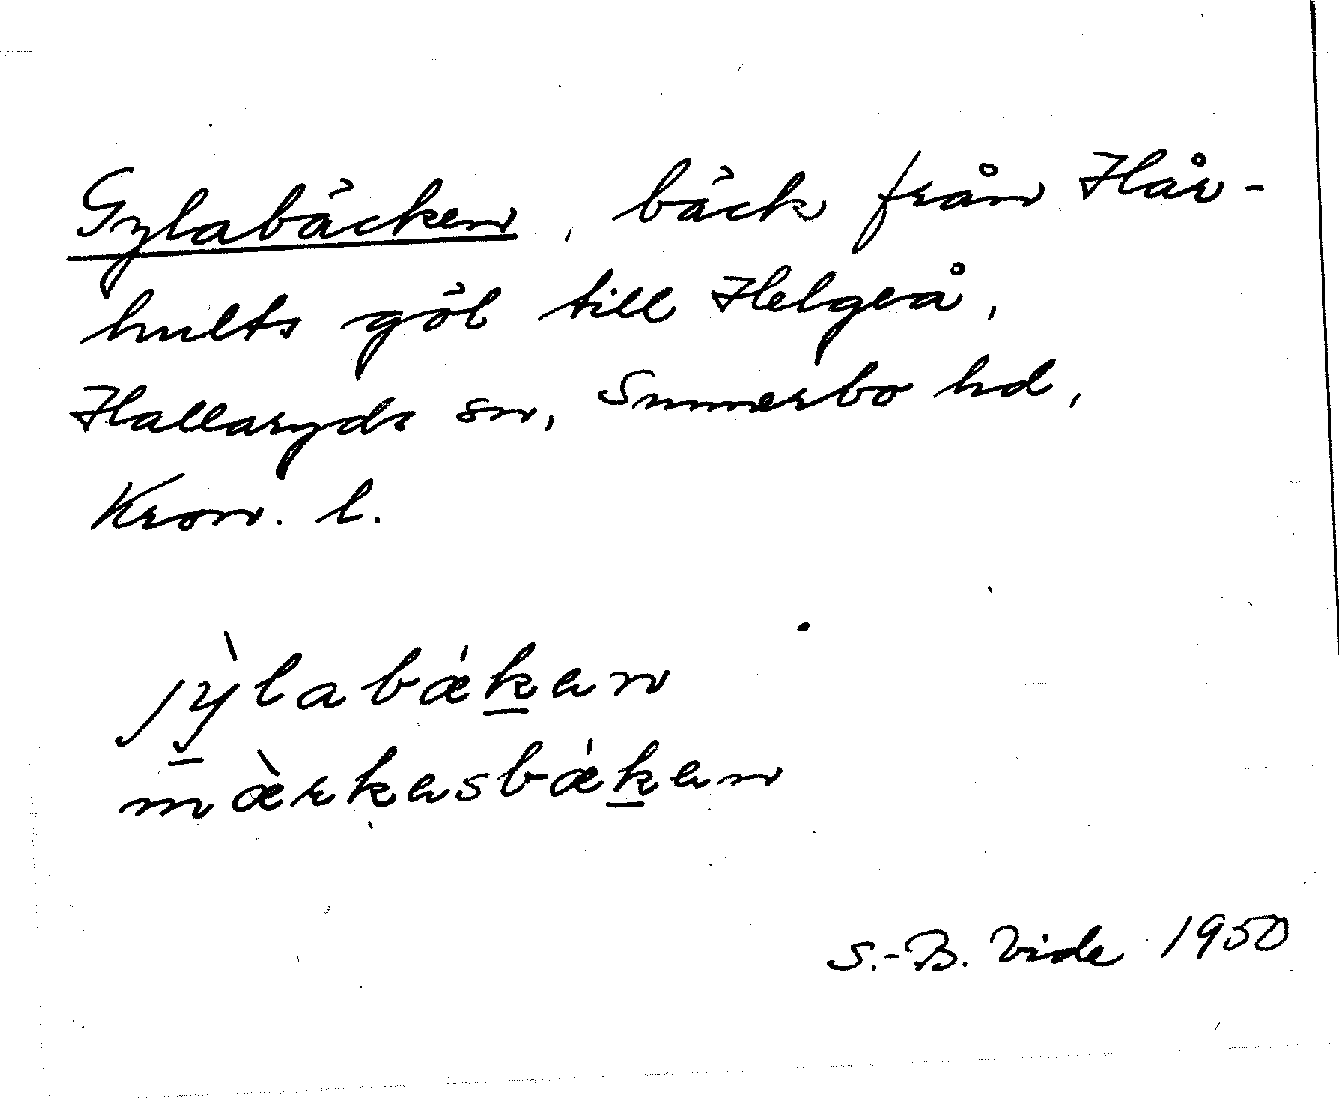 Gylabäcken, bäck från Hår-
hults göl till Helgeå,
Hallaryds sn, Sunnerbo hd,
Kron. l.
jỳ̠labǽk̠en
mæ̀rkesbǽk̠en
S.-B. Vide 1950